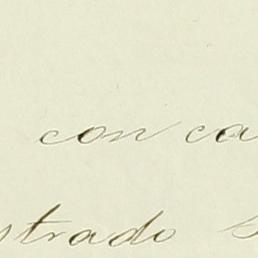 con ca
strado S